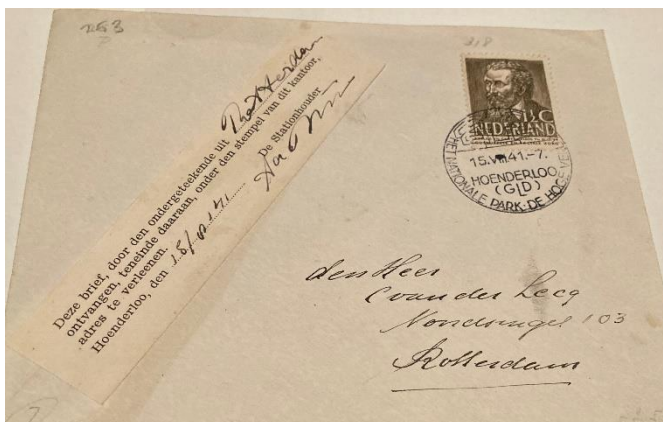 318
Deze brief, door den ondergeteekende uit Rotterdam
ontvangen, teneinde daaraan, onder den stempel van dit kantoor,
adres te verleenen. De Stationhouder
Hoenderloo, den
1½ C
NEDERLAND
15.VIII 41.-7.
HOENDERLOO
(GLD)
HET NATIONALE PARK·DE HOGE VE
den Heer
C van der Leeg
Noordsingel 103
Rotterdam